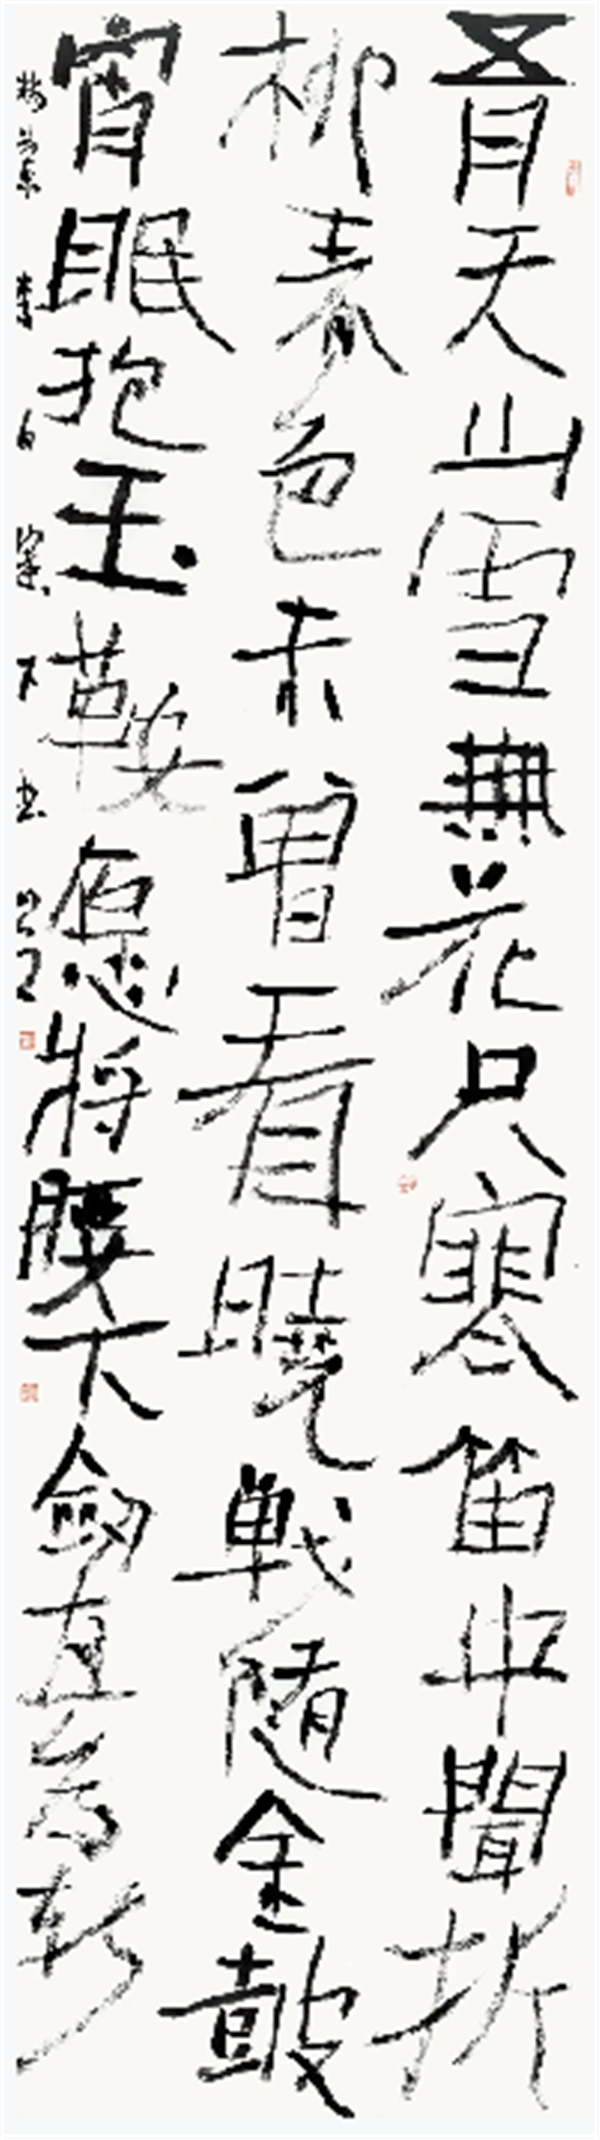 五月天山雪無花只寒笛中聞折
柳春色未曾看曉戰隨金鼓
宵眠抱玉鞍愿將腰下劍直為斬
李白塞下